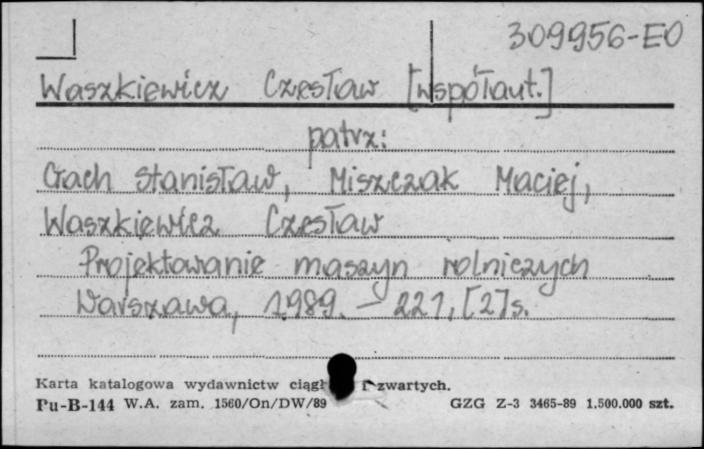 309956-EO
Waszkiewicz Czesław [współaut.]
patrz:
Gach Stanisław, Miszczak Maciej,
Waszkiewicz Czesław
Projektowanie maszyn rolniczych
Warszawa, 1989. - 221, [2]s.
Karta katalogowa wydawnictw ciągł zwartych.
Pu-B-144 W.A. zam. 1560/On/DW/89 GZG Z-3 3465-89 1.500.000 szt.